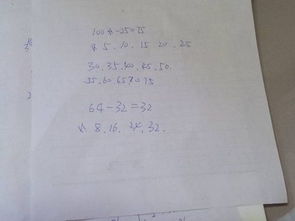 100-25=75
5. 10. 15 20. 25
30. 35. 40. 45. 50.
55. 60 65 70 75
64-32=32
8. 16. 24. 32.